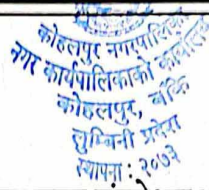 कोहलपुर नगरपालिका
नगर कार्यपालिकाको कार्यालय
कोहलपुर, बाँके
लुम्बिनी प्रदेश
स्थापना : २०७३